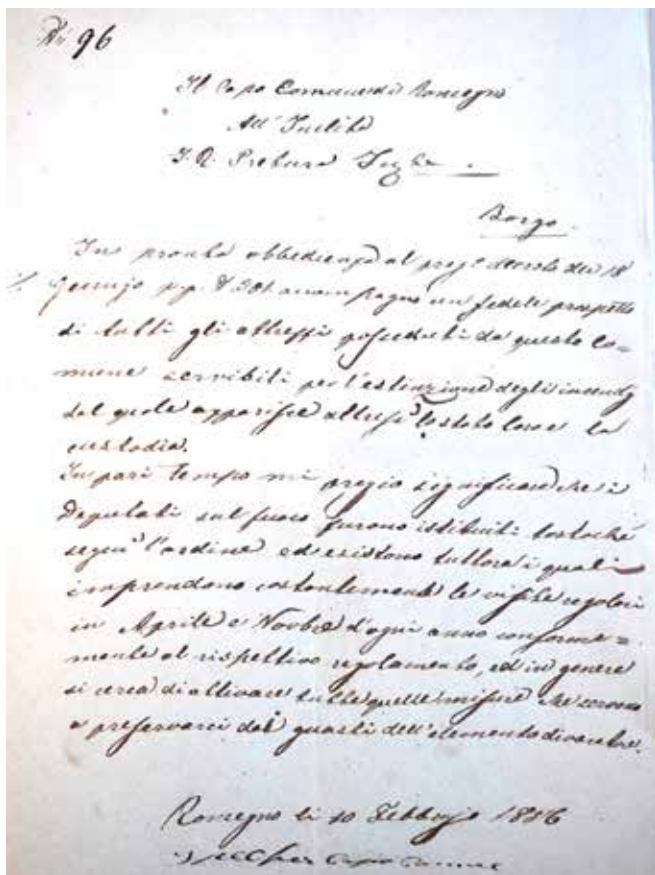 N.º 96
Il Capo Comune di Roncegno
All'Inclita
I. R. Pretura
Borgo.
In pronta obbedienza al preg.º decreto dei 18
Gennajo p.p. N 201 accompagno un fedele prospetto
di tutti gli attrezzi posseduti da questo Co=
mune servibili per l'estinzione degli incendj
dal quale apparisce altresì lo stato loro e la
custodia.
In pari tempo mi pregio significare che i
Deputati sul fuoco furono istituiti tostochè
seguì l'ordine ed esistono tuttora i quali
imprendono costantemente le visite regolari
in Aprile e Novbre d'ogni anno conforme=
mente al rispettivo regolamento, ed in genere
si cerca di attivare tutte quelle misure che servono
a preservarci dai guasti dell'elemento divoratore.
Roncegno li 10 Febbrajo 1856
Capo Comune